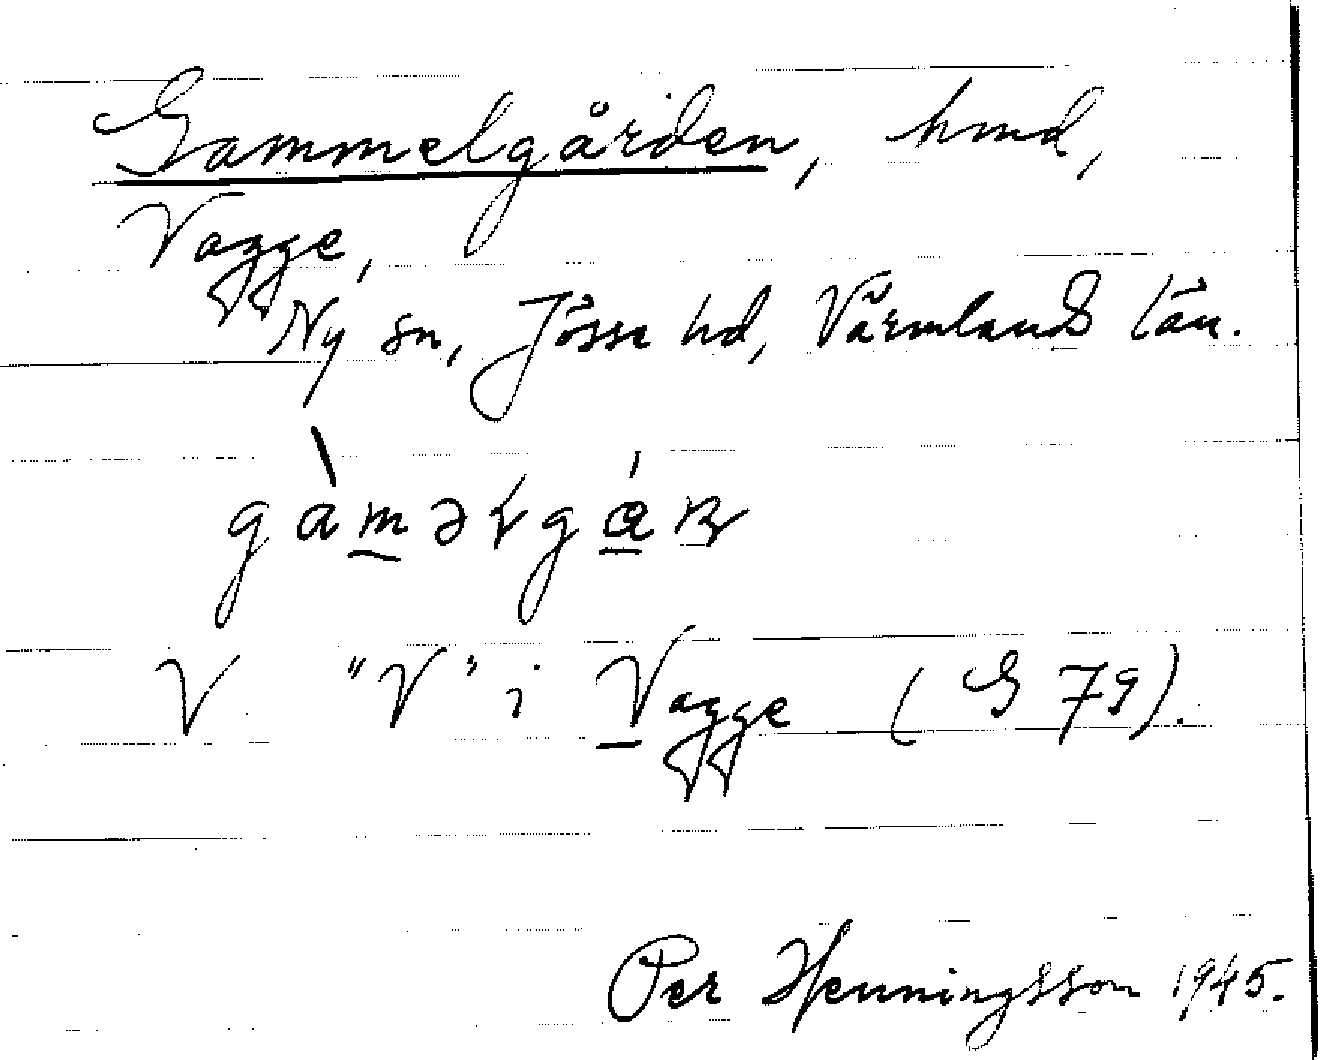 Gammelgården, hmd,
Vagge,
Ny sn, Jösse hd, Värmlands län.
V "V" i Vagge (G 79).
Per Henningsson 1945.